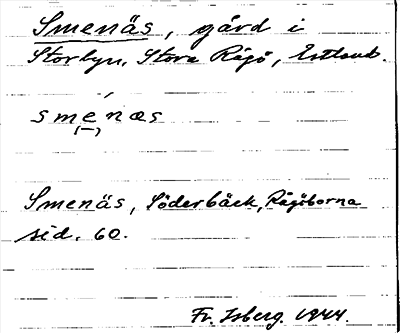 Smenäs, gård i
Storbyn, Stora Rågö, Estland.
smenæs
Smenäs, Söderbäck, Rågöborna
sid. 60.
Fr. Isberg. 1944.